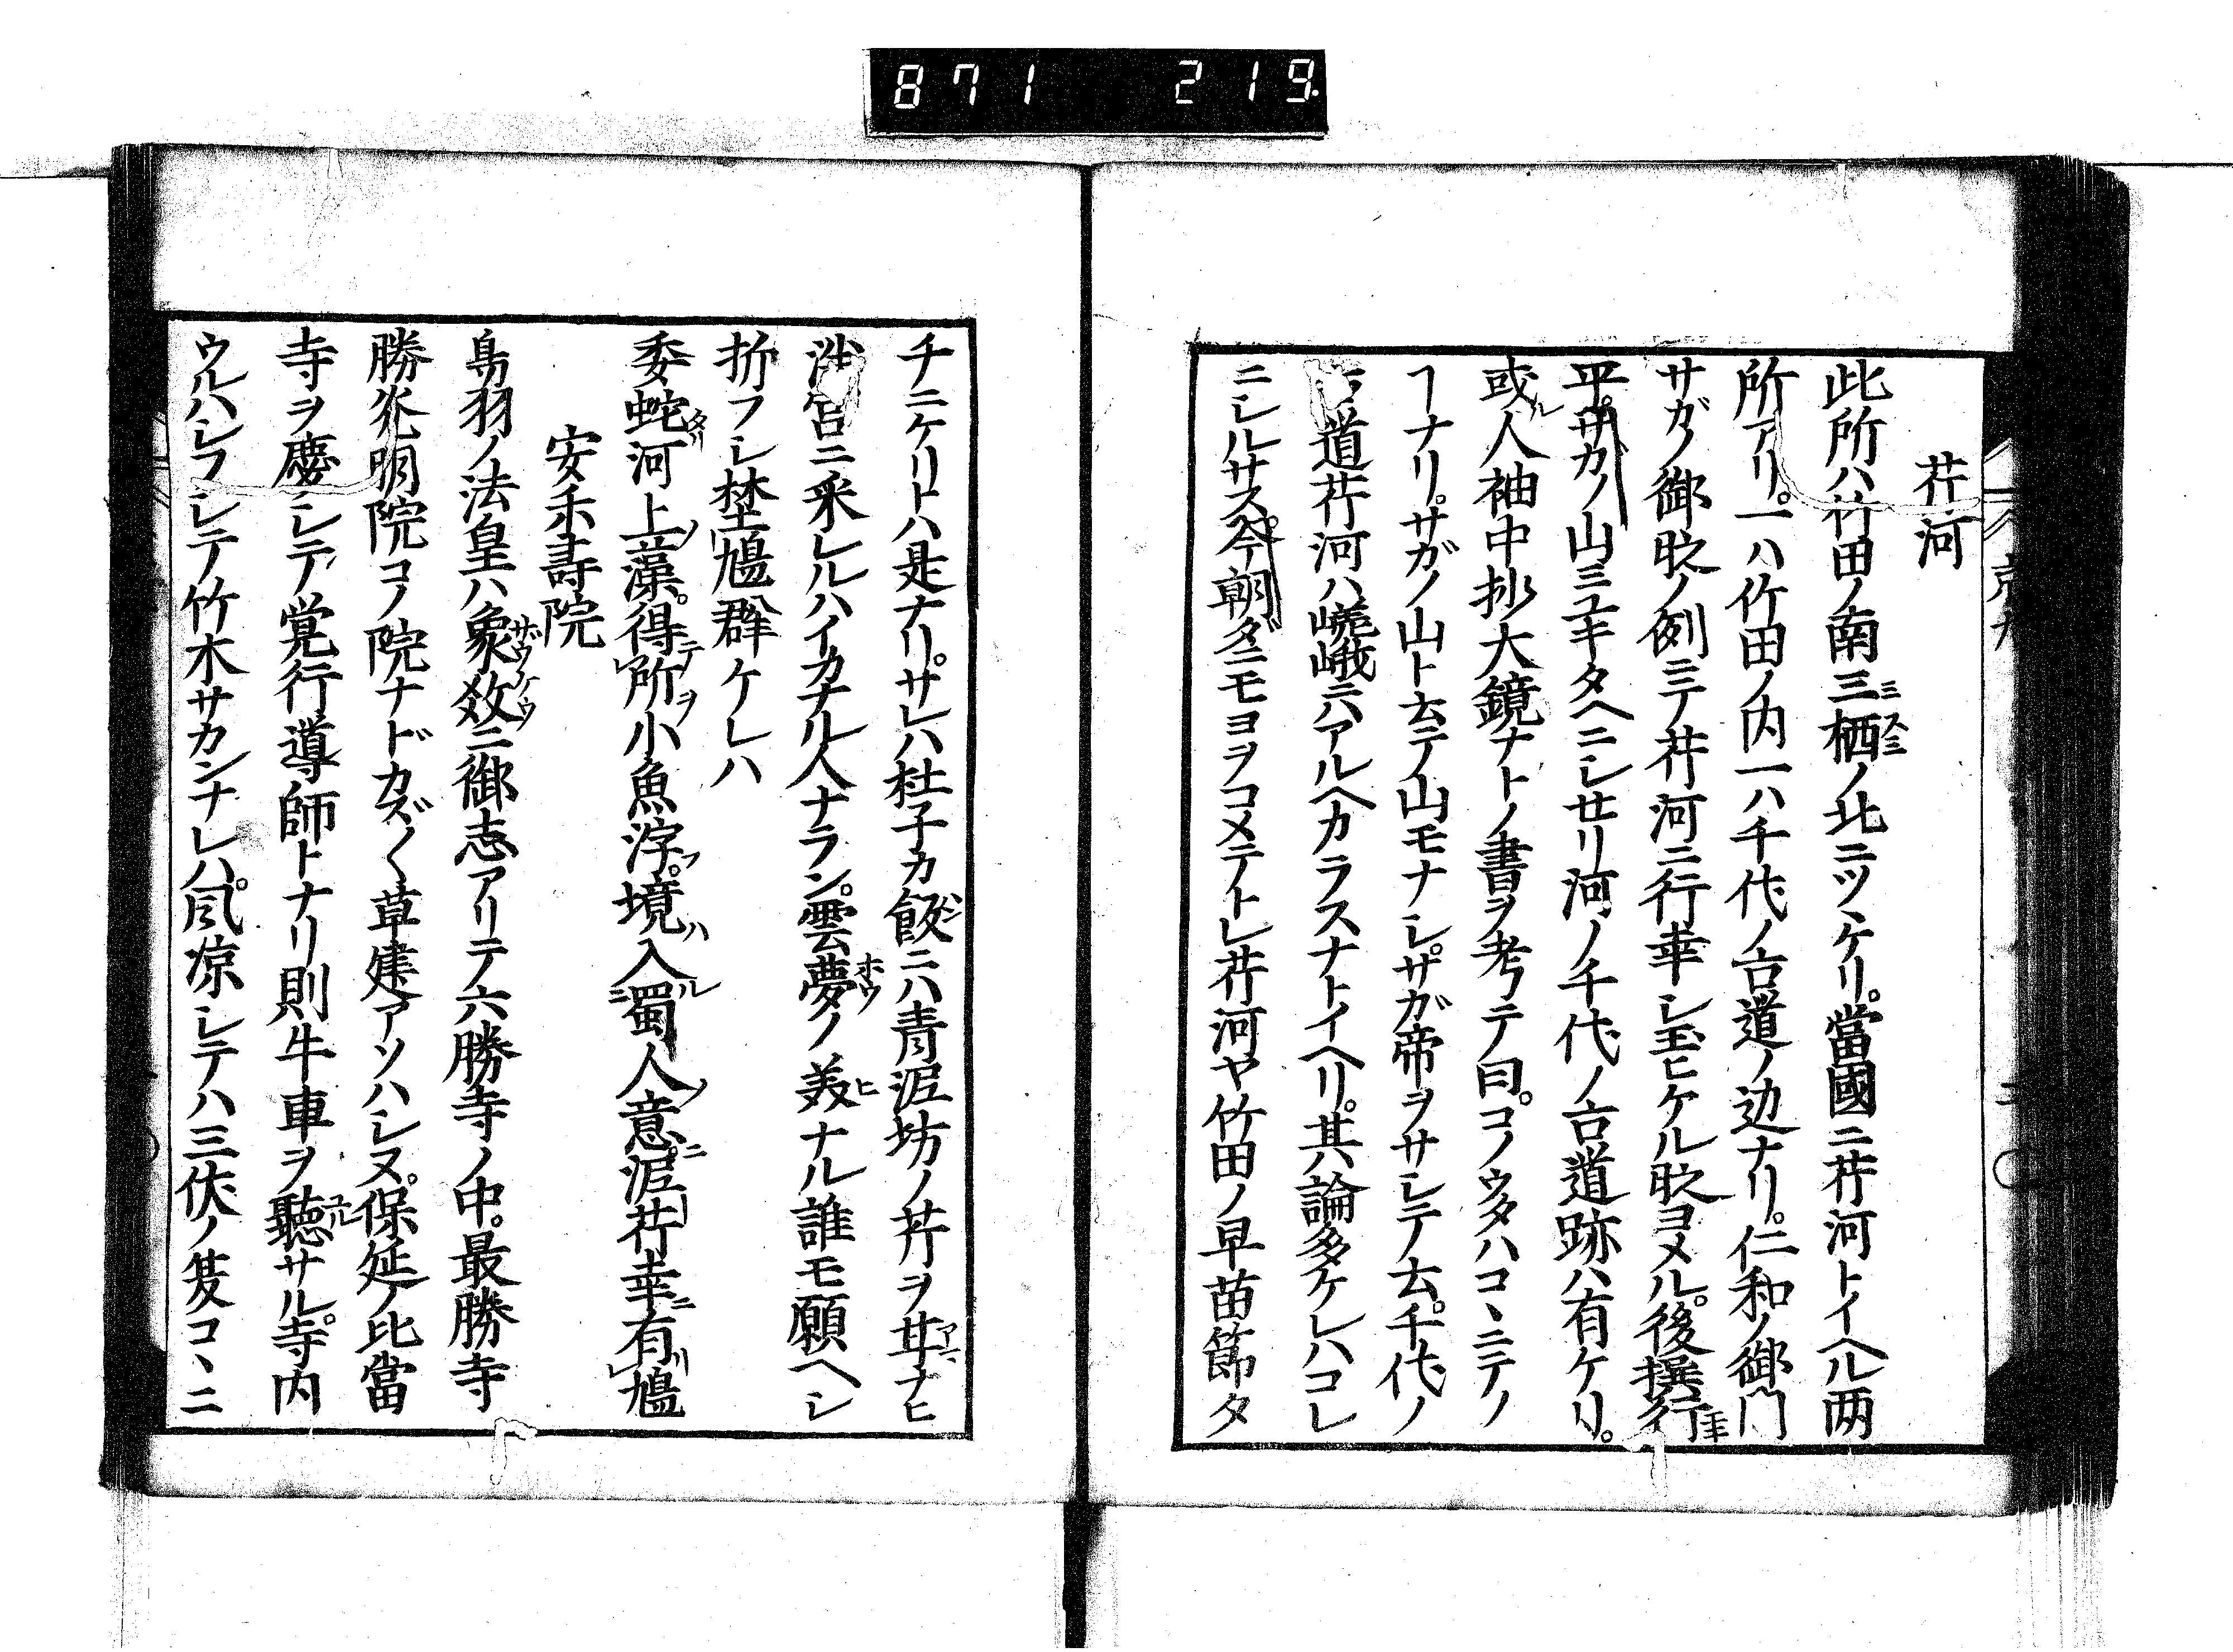 871 219
芹河
此所ハ竹田ノ南三栖ノ北ニツヽケリ。當國ニ芹河トイヘル両
所アリ。一ハ竹田ノ内一ハ千代ノ古道ノ辺ナリ。仁和ノ御門
サガノ御時ノ例ニテ芹河ニ行幸シ玉ヒケル時ヨメル。後撰行平
平。サガノ山ミユキタヘニシ世リ河ノ千代ノ古道跡ハ有ケリ。
或人袖中抄大鏡ナトノ書ヲ考テ曰。コノウタハコヽニテノ
ヿナリ。サガノ山ト云テ山モナシ。サガ帝ヲサシテ云。千代ノ
道芹河ハ嵯峨ニハアルヘカラスナトイヘリ。其論多ケレハコレ
ニシルサス。今朝ダニモヨヲコメテトレ芹河ヤ竹田ノ早苗節タ
チニケリトハ是ナリ。サレハ杜子カ飯ニハ青泥坊ノ芹ヲ甘ナヒ
宮ニ采レルハイカナル人ナラン。雲夢ノ美ナル誰モ願ヘシ
折フシ鳬群ケレハ
委蛇河上藻。得所小魚浮。境入蜀人意。泥芹幸有鳬
安禾壽院
鳥羽ノ法皇ハ象教ニ御志アリテ六勝寺ノ中。最勝寺
勝光明院コノ院ナドカズ〱草建アソハシヌ。保延ノ比當
寺ヲ慶シテ覚行導師トナリ則牛車ヲ聽サル。寺内
ウルハシフシテ竹木サカンナレハ。風凉シテハ三伏ノ隻コヽニ